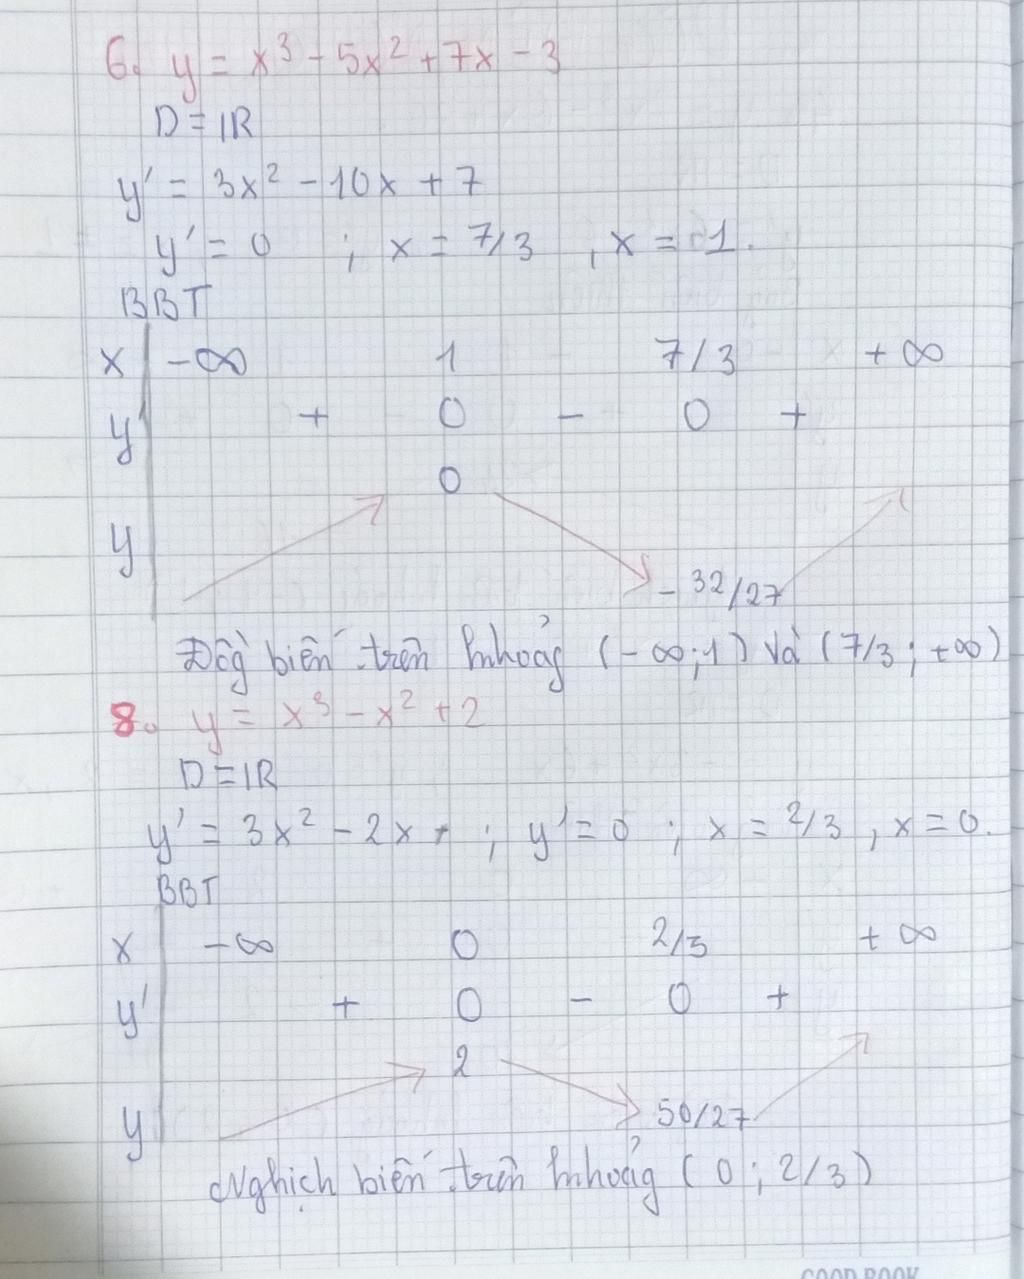 6. y = x³ - 5x² + 7x - 3
D = IR
y' = 3x² - 10x + 7
y' = 0 ; x = 7/3 , x = 1.
BBT
x -∞ 1 7/3 +∞
y' + 0 - 0 +
0
y
- 32/27
Đồg biến trên khoảg (-∞;1) và (7/3; +∞)
8. y = x³ - x² + 2
D = IR
y' = 3x² - 2x ; y' = 0 ; x = 2/3 , x = 0.
BBT
x -∞ 0 2/3 +∞
y' + 0 - 0 +
2
50/27
y
Nghịch biến trên khoảg (0; 2/3)
GOOD BOOK